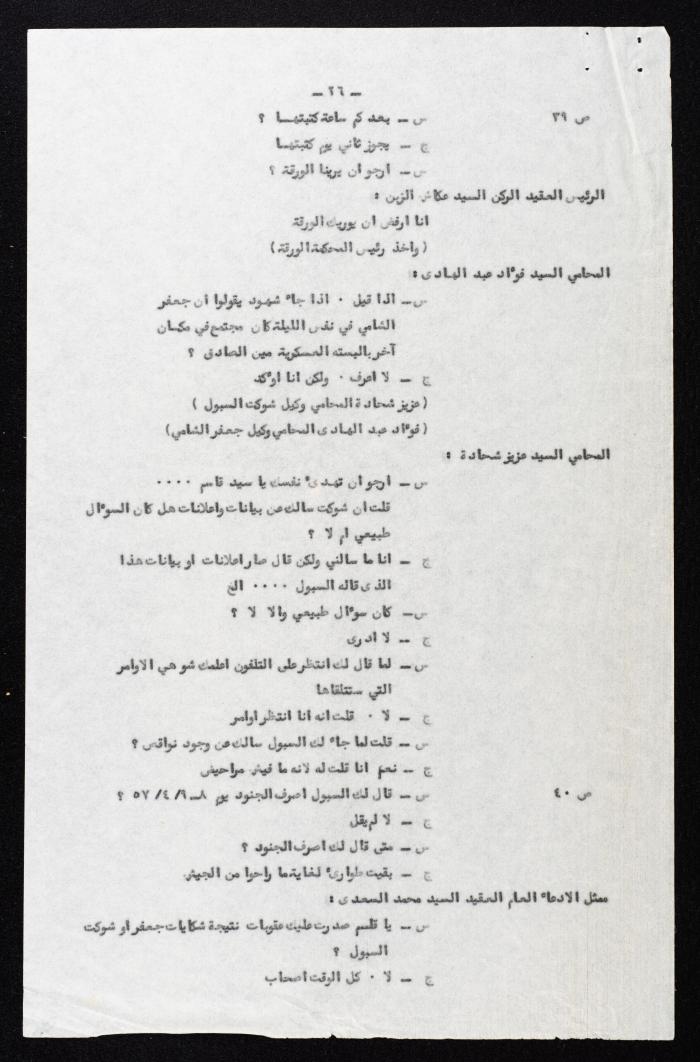 ـ ٢٦ ـ
ص ٣٩ س ـ بعد كم ساعة كتبتهـا ؟
ج ـ يجوز ثاني يوم كتبتهـا
س ـ ارجو ان يرينا الورقة ؟
الرئيس العقيد الركن السيد عكاش الزبن :
انا ارفض ان يوريك الورقة
( واخذ رئيس المحكمة الورقة )
المحامي السيد فوءاد عبد الهادى :
س ـ اذا قيل ٠ اذا جاء شهود يقولوا ان جعفر
الشامي في نفس الليلة كان مجتمع في مكـان
آخر بالبسته العسكرية مين الصادق ؟
ج ـ لا اعرف ٠ ولكن انا اوءكد
( عزيز شحادة المحامي وكيل شوكت السبول )
( فوءاد عبد الهادى المحامي وكيل جعفر الشامي )
المحامي السيد عزيز شحادة :
س ـ ارجو ان تهدىء نفسك يا سيد قاسم ٠٠٠٠
قلت ان شوكت سالك عن بيانات واعلانات هل كان السوءال
طبيعي ام لا ؟
ج ـ انا ما سالني ولكن قال صار اعلانات او بيانات هذا
الذى قاله السبول ٠٠٠٠ الخ
س ـ كان سوءال طبيعي والا لا ؟
ج ـ لا ادرى
س ـ لما قال لك انتظر على التلفون اعلمك شو هي الاوامر
التي ستتلقاها
ج ـ لا ٠ قلت انه انا انتظر اوامر
س ـ قلت لما جاء لك السبول سالك عن وجود نواقص ؟
ج ـ نعم انا قلت له لانه ما فيش مراحيض
ص ٤٠ س ـ قال لك السبول اصرف الجنود يوم ٨ـ٩/ ٤/ ٥٧ ؟
ج ـ لا لم يقل
س ـ متى قال لك اصرف الجنود ؟
ج ـ بقيت طوارىء لغاية ما راحوا من الجيش
ممثل الادعاء العام العقيد السيد محمد السعدى :
س ـ يا قاسم صدرت عليك عقوبات نتيجة شكايات جعفر او شوكت
السبول ؟
ج ـ لا ٠ كل الوقت اصحاب